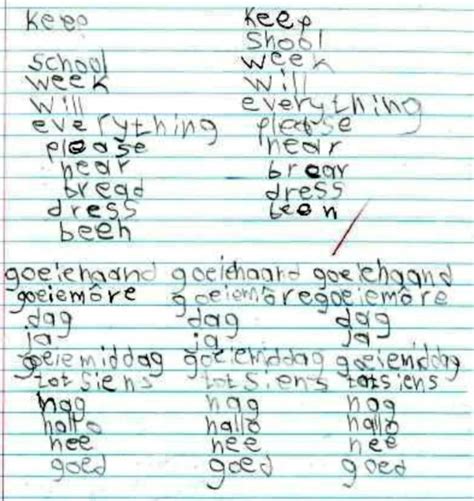 keep
school
week
will
everything
please
hear
bread
dress
been
keep
Shool
week
will
everything
please
hear
brear
dress
been
goeiehaand goeiehaand goeiehaand
goeiemôre goeiemôre goeiemôre
dag dag dag
ja ja ja
goeiemiddag goeiemiddag goeiemiddag
tot siens tot siens tot siens
nag nag nag
hallo hallo hallo
nee nee nee
goed goed goed